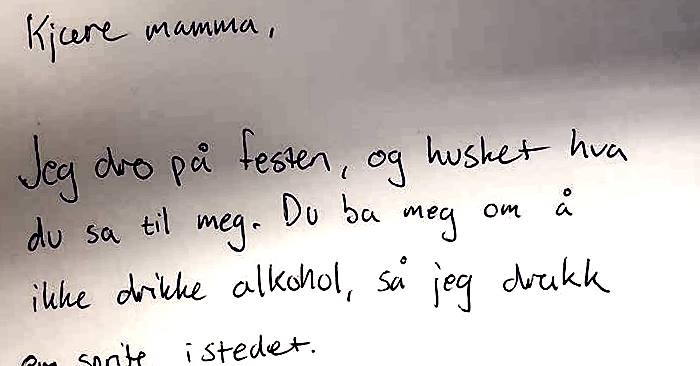 Kjære mamma,
Jeg dro på festen, og husket hva
du sa til meg. Du ba meg om å
ikke drikke alkohol, så jeg drakk
en sprite istedet.